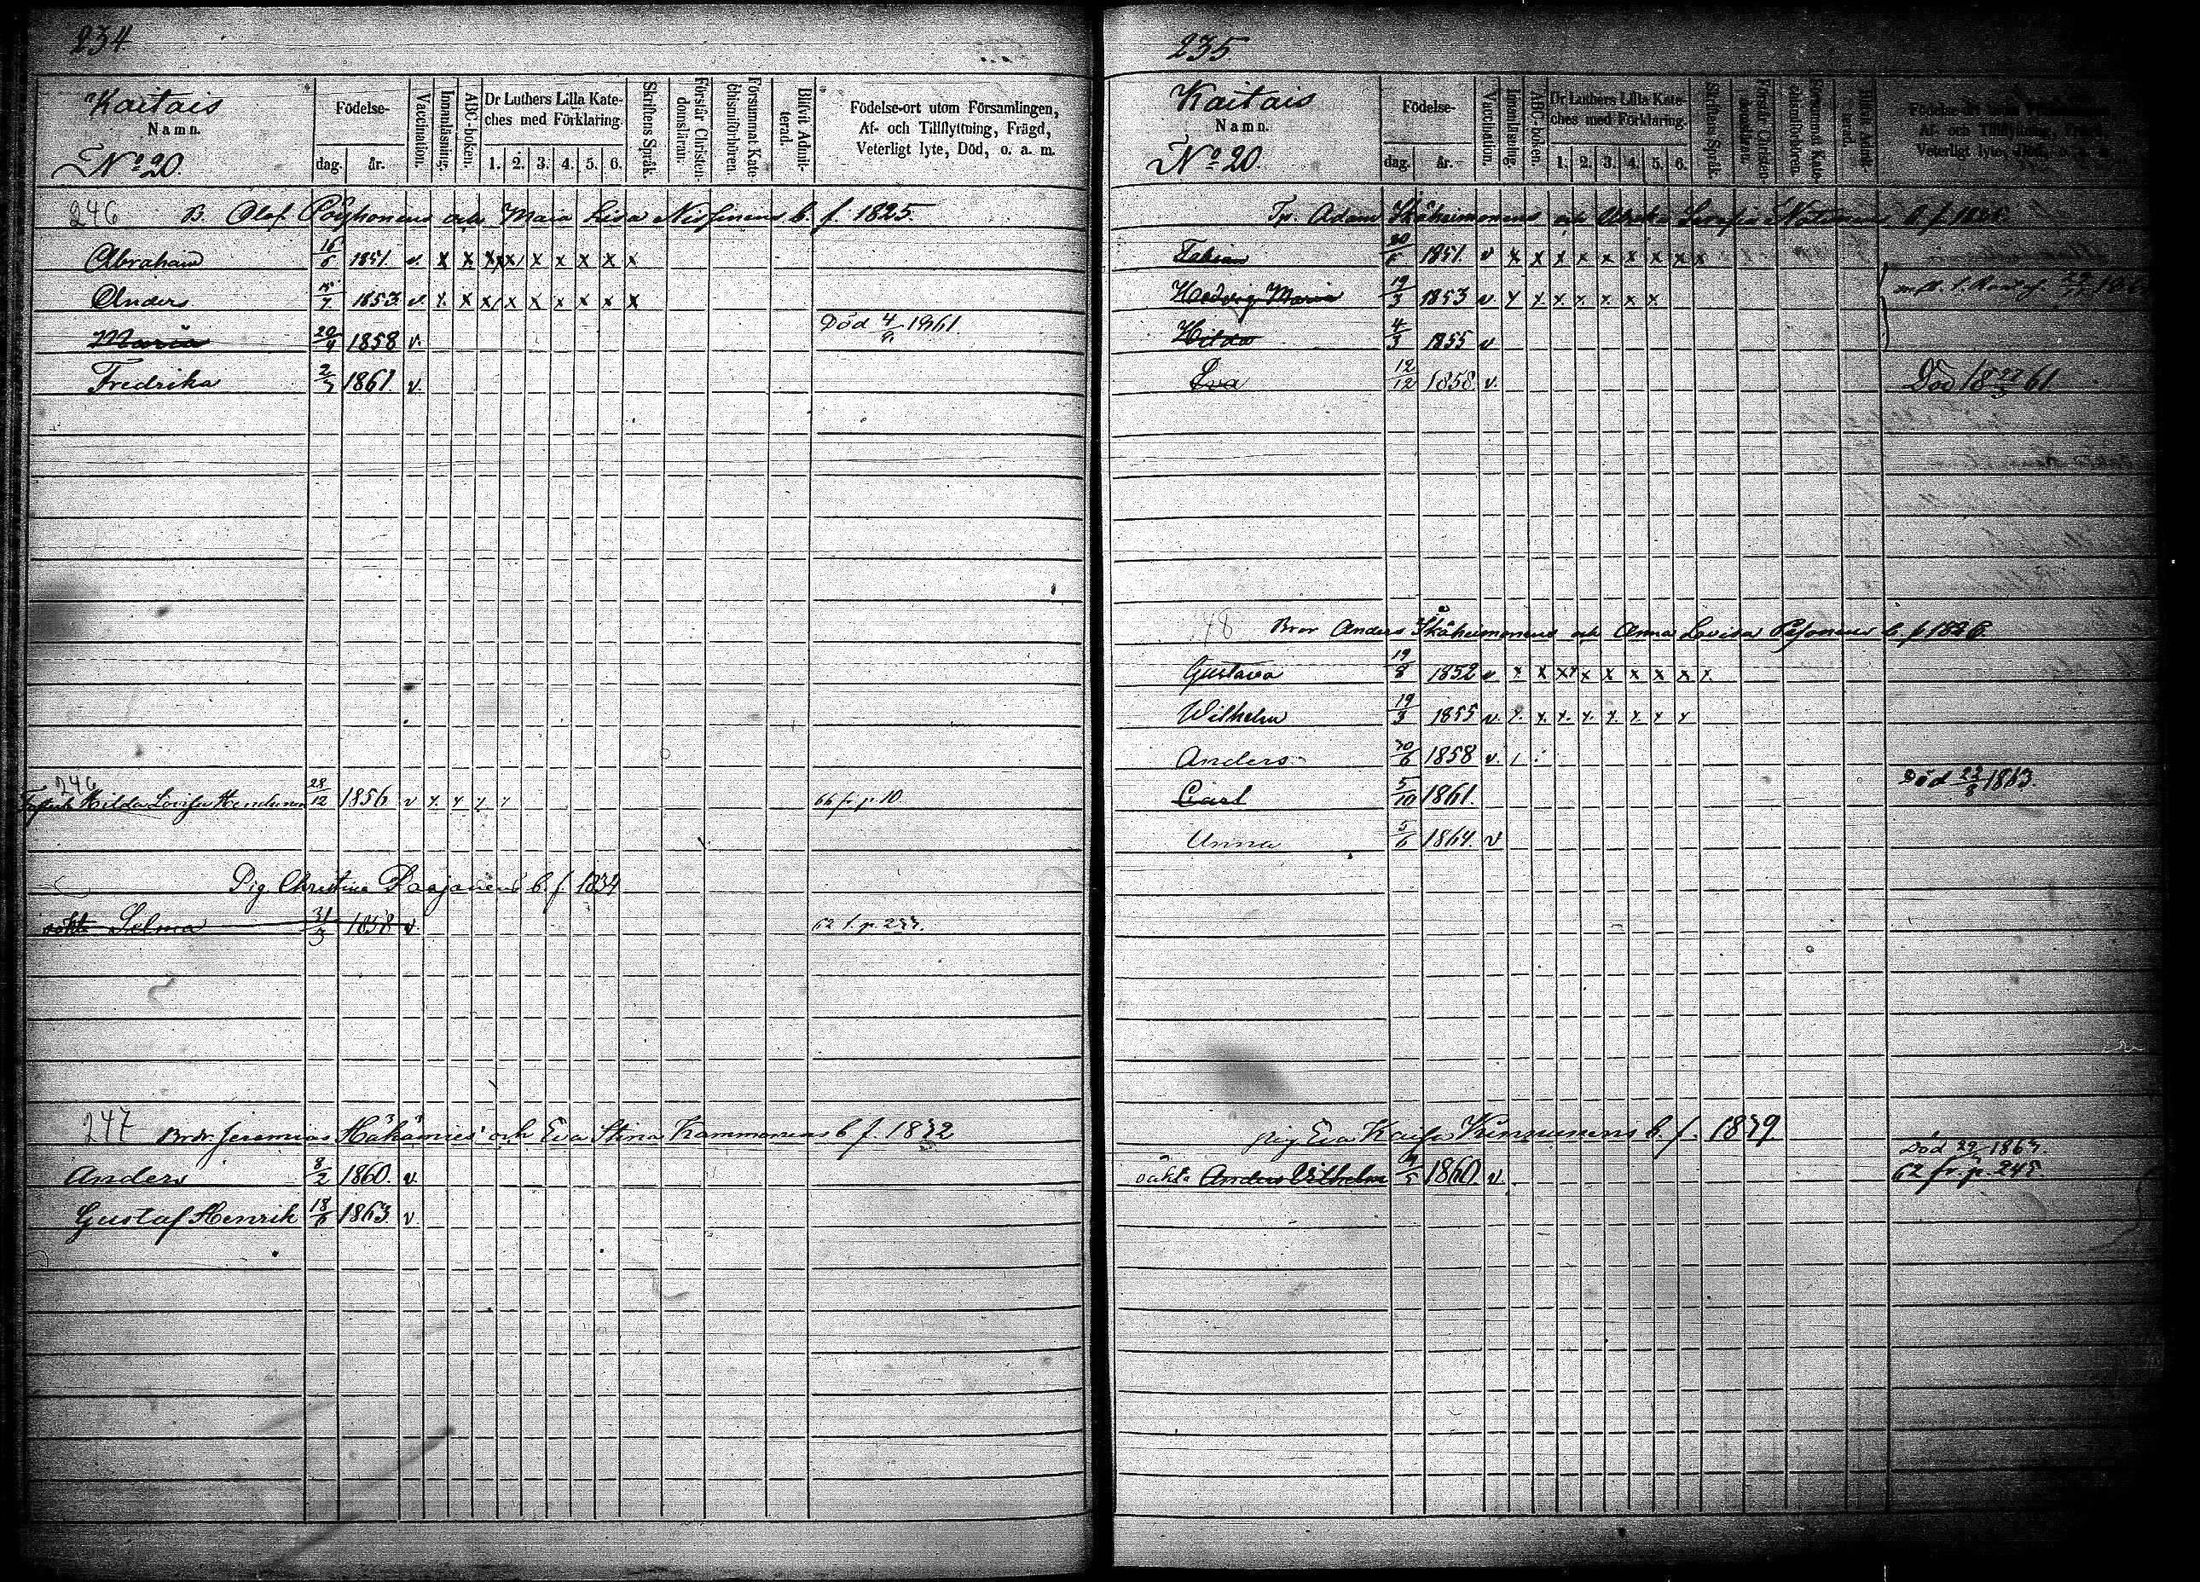 234
Kaitais
Namn.
No 20.
Födelse-
dag.
år.
Vaccination.
Innanläsning.
ABC-boken.
Dr Luthers Lilla Kate-
ches med Förklaring.
1. 2. 3. 4. 5. 6.
Skriftens Språk.
Förstår Christen-
domsläran.
Försummat Kate-
chismiförhören.
Blifvit Admit-
terad.
Födelse-ort utom Församlingen,
Af- och Tillflyttning, Frägd,
Veterligt lyte, Död, o. a. m.
246 B. Olof Pöyhönens och Maria Lisa Nissinens b. f. 1825.
Abraham 16/6 1851. v. x x x x x x x x x
Anders 7 1853. v. x x x x x x x x x
Maria 1858 v. Död 4 1861.
Fredrika 2/7 1861 v.
246
Hilda Lovisa 28/12 1856 v x x x x 66 fr. p 10.
Pig. Christina Paajanens b. f. 1834
oäkt. Selma 31/3 1858 v. 62 t. p. 237.
247 Brdr. Jeremias och Eva Stina Kammonens b. f. 1832
Anders 8/2 1860. v.
Gustaf Henrik 18/6 1863 v
235.
Kaitais
Namn.
No 20.
Födelse-
dag.
år.
Vaccination.
Innanläsning.
ABC-boken.
Dr Luthers Lilla Kate-
ches med Förklaring.
1. 2. 3. 4. 5. 6.
Skriftens Språk.
Förstår Christen-
domsläran.
Försummat Kate-
chismiförhören.
Blifvit Admit-
terad.
Födelse-ort utom Församlingen,
Af- och Tillflyttning, Frägd,
Veterligt lyte, Död, o. a. m.
Adam och Ulrika Sofia b. f.
Fabian 1851. v x x x x x x x x x
Hedvig Maria 19/3 1853 v x x x x x x x
Hilda 4/3 1855 v
Eva 12/12 1858 v. Död 18 61.
48 Bror Anders och Anna Lovisa Pesonens b. f 1826.
Gustava 19/8 1852 v x x x x x x x x x
Wilhelm 19/3 1855 v. x x x x x x x x
Anders 1858 v.
Carl 5/10 1861. Död 1863.
Anna 5/6 1864. v
Pig Eva Kaisa Kinnunens b. f. 1839
oäkta Anders Vilhelm 1860 v. Död 1863.
62 fr. p. 245.